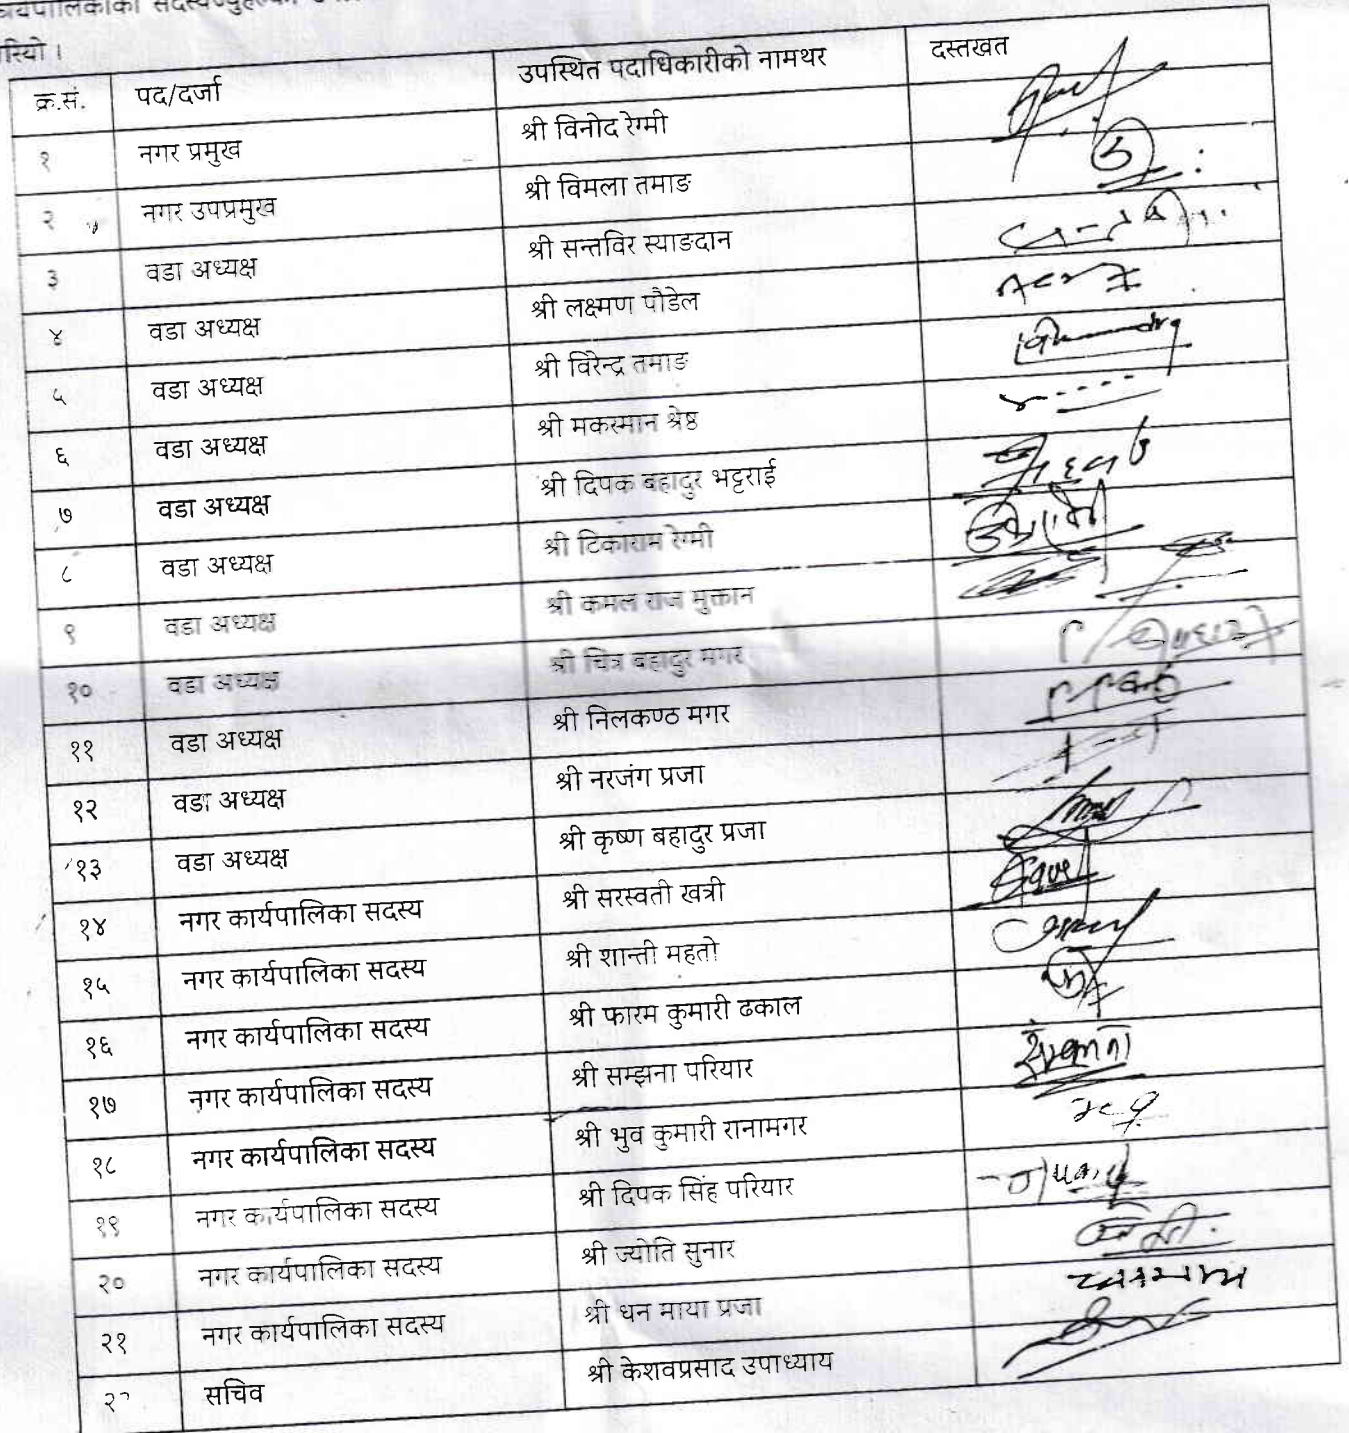 रियो ।
क्र.सं. पद/दर्जा उपस्थित पदाधिकारीको नामथर दस्तखत
१ नगर प्रमुख श्री विनोद रेग्मी
२ नगर उपप्रमुख श्री विमला तमाङ
३ वडा अध्यक्ष श्री सन्तविर स्याङदान
४ वडा अध्यक्ष श्री लक्ष्मण पौडेल
५ वडा अध्यक्ष श्री विरेन्द्र तमाङ
६ वडा अध्यक्ष श्री मकरमान श्रेष्ठ
७ वडा अध्यक्ष श्री दिपक बहादुर भट्टराई
८ वडा अध्यक्ष श्री टिकाराम रेग्मी
९ वडा अध्यक्ष श्री कमल राज मुक्तान
१० वडा अध्यक्ष श्री चित्र बहादुर मगर
११ वडा अध्यक्ष श्री निलकण्ठ मगर
१२ वडा अध्यक्ष श्री नरजंग प्रजा
१३ वडा अध्यक्ष श्री कृष्ण बहादुर प्रजा
१४ नगर कार्यपालिका सदस्य श्री सरस्वती खत्री
१५ नगर कार्यपालिका सदस्य श्री शान्ती महतो
१६ नगर कार्यपालिका सदस्य श्री फारम कुमारी ढकाल
१७ नगर कार्यपालिका सदस्य श्री सम्झना परियार
१८ नगर कार्यपालिका सदस्य श्री भुव कुमारी रानामगर
१९ नगर कार्यपालिका सदस्य श्री दिपक सिंह परियार
२० नगर कार्यपालिका सदस्य श्री ज्योति सुनार
२१ नगर कार्यपालिका सदस्य श्री धन माया प्रजा
सचिव श्री केशवप्रसाद उपाध्याय